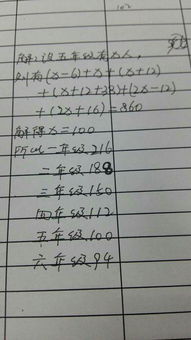 解:设五年级有x人,
则有(x-6)+x+(x+12)
+(x+12+38)+(2x-12)
+(2x+16)=860
解得x=100
所以一年级216
二年级188
三年级150
四年级112
五年级100
六年级94